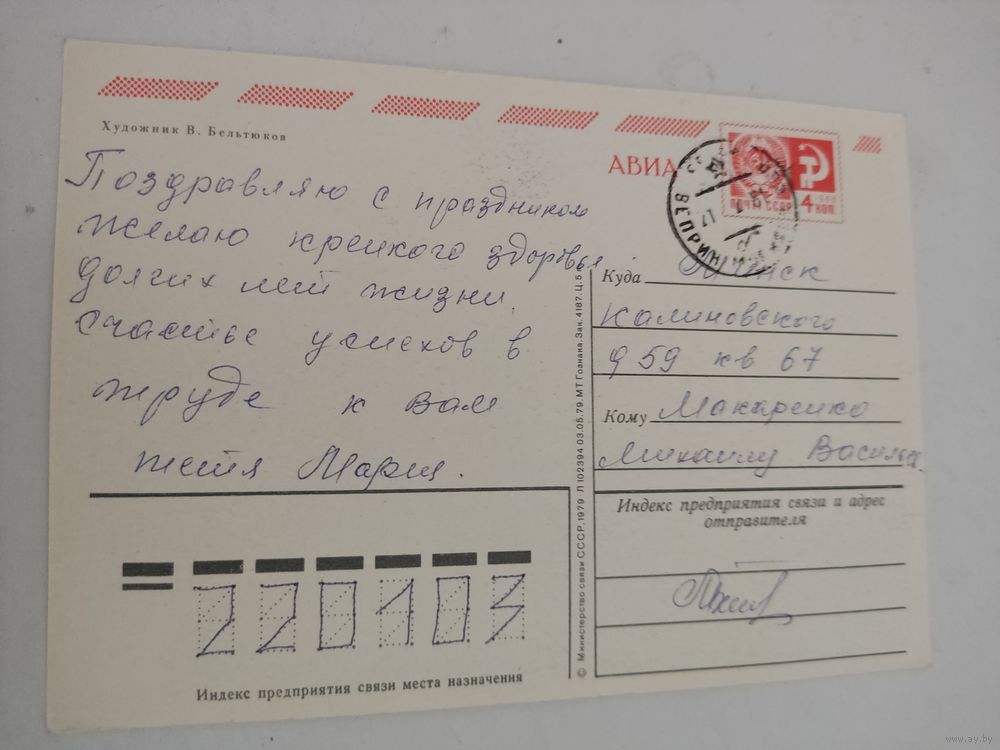 Художник В. Бельтюков
АВИА
ПОЧТА СССР
4 КОП.
Поздравляю с праздником
желаю крепкого здоровья
долгих лет жизни.
счастье успехов в
труде к вам
тётя Мария.
Куда Минск
Калиновского
д 59 кв 67
Кому Макаренко
Михаилу Василье
Индекс предприятия связи и адрес
отправителя
220103
Индекс предприятия связи места назначения
© Министерство связи СССР, 1979 Л 102394 03.05.79. МТ Гознака. Зак. 4187. Ц. 5
www.ay.by